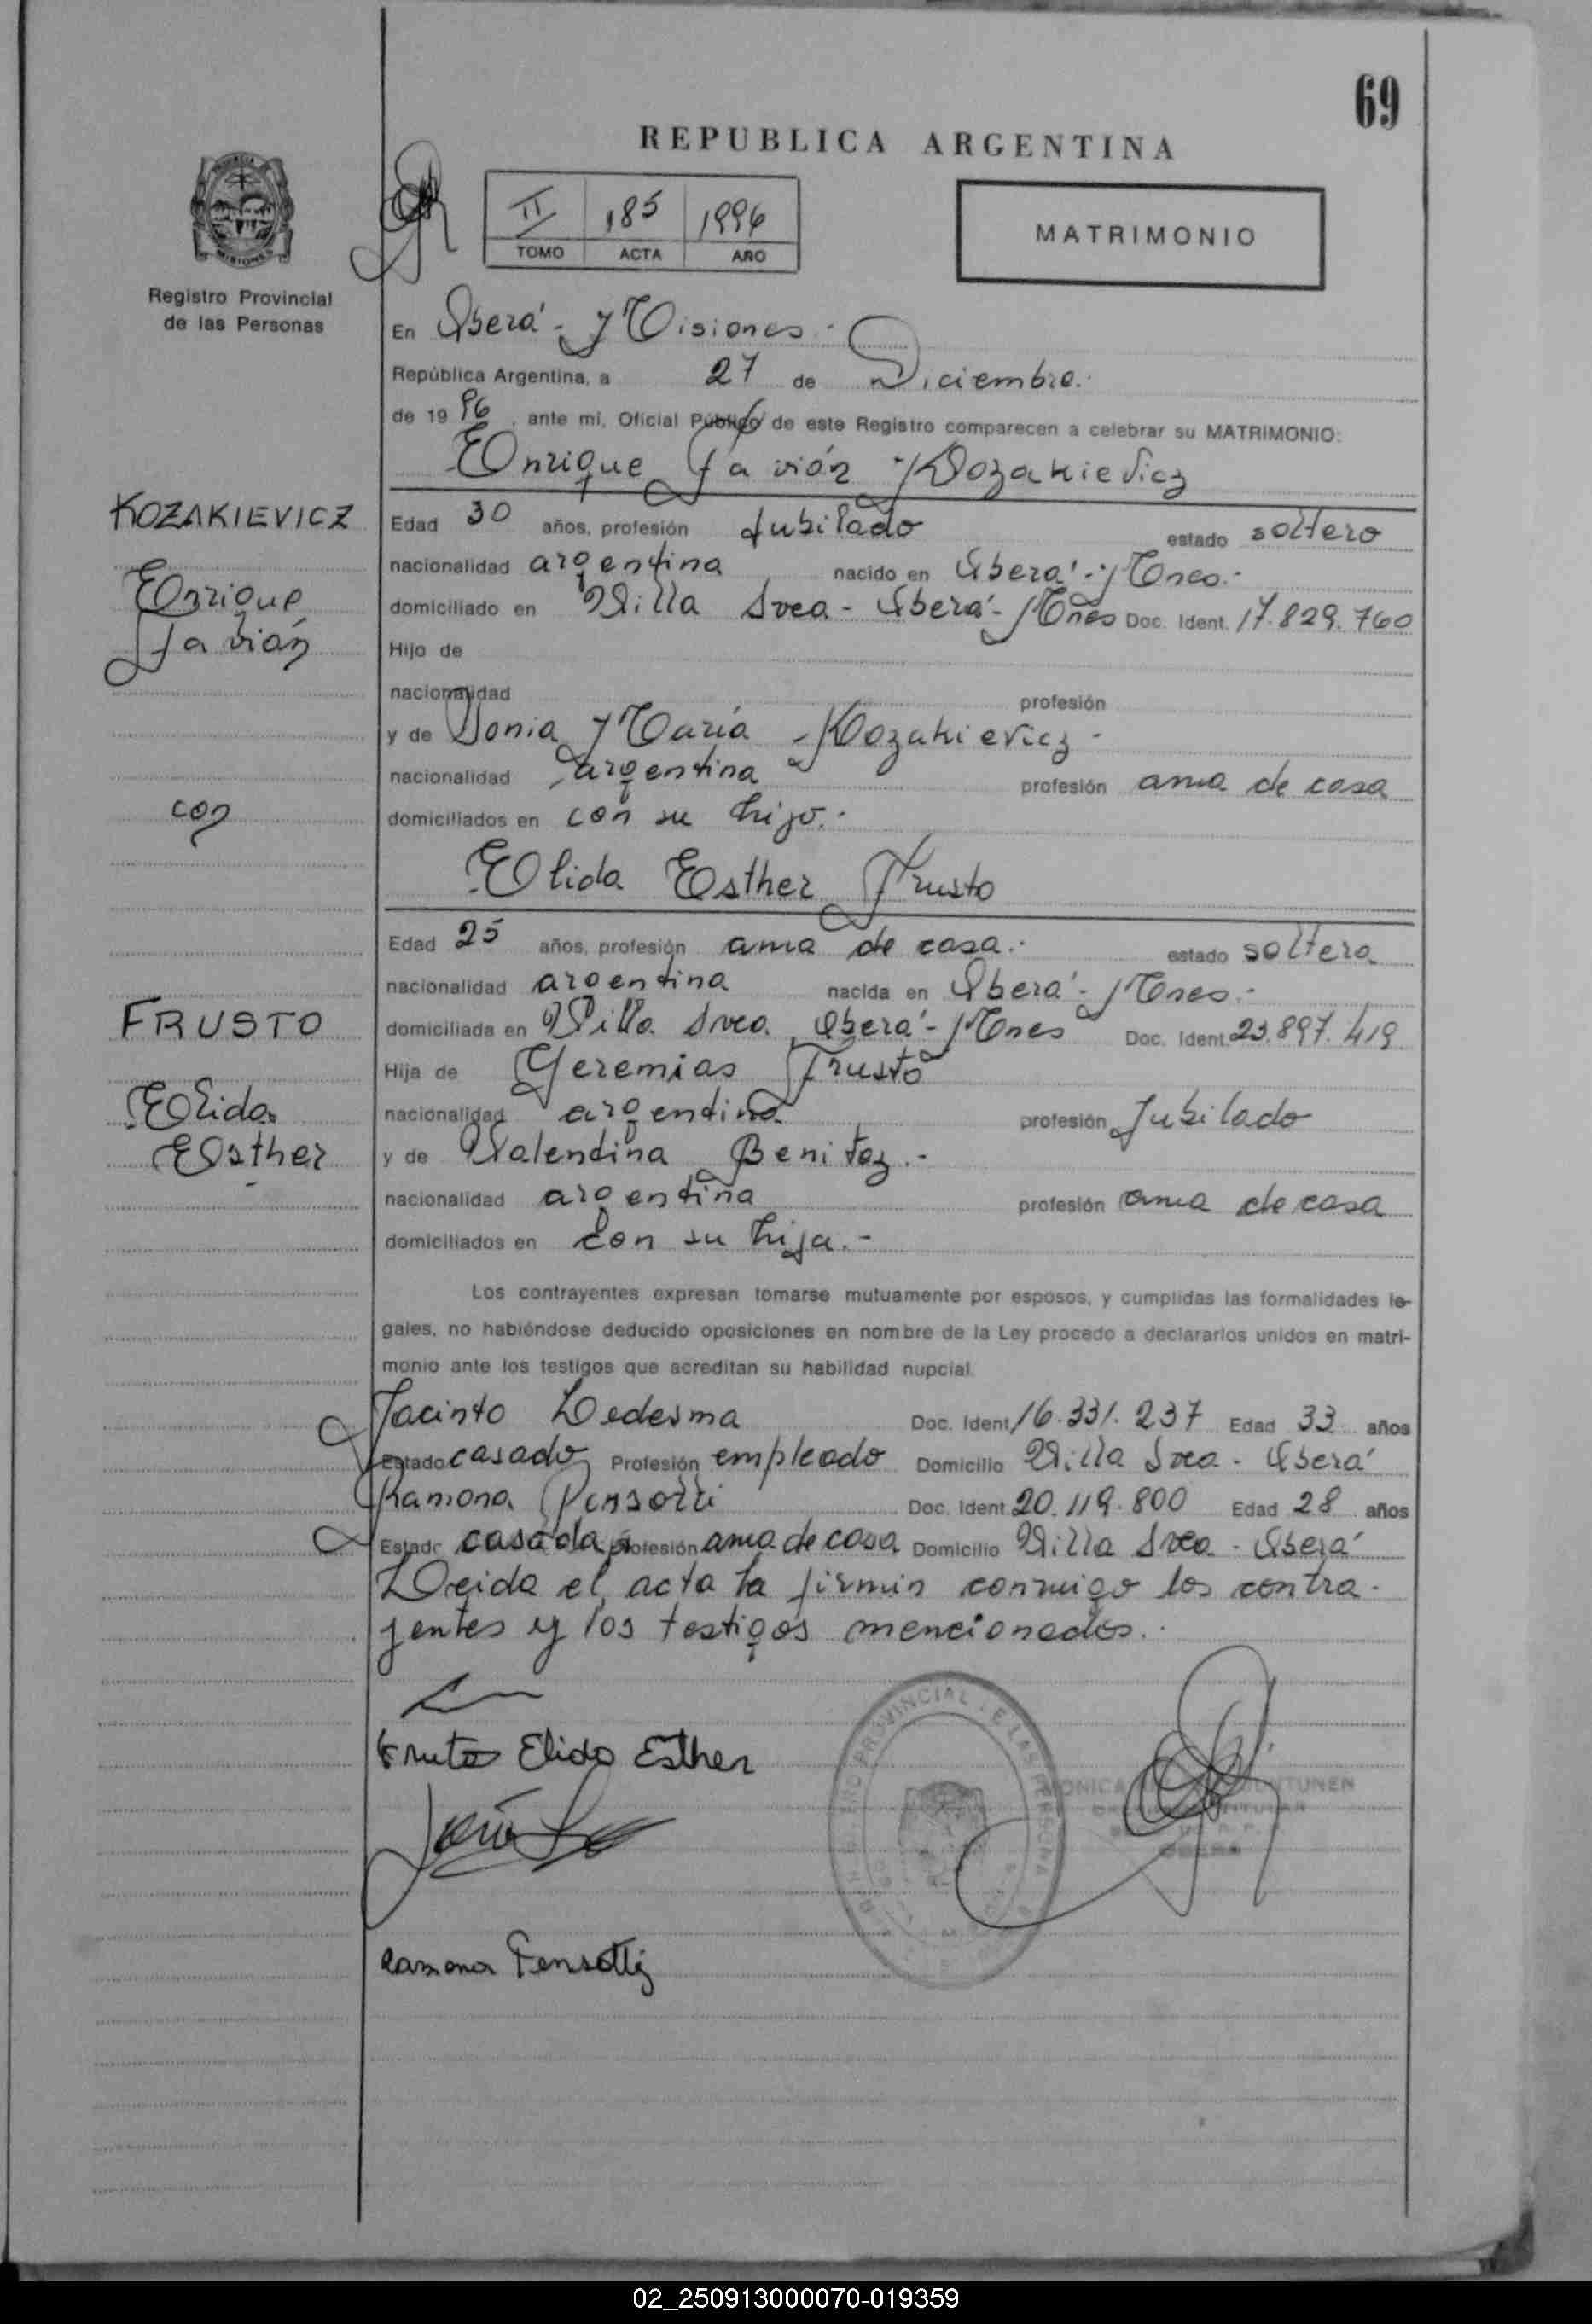 69
REPUBLICA ARGENTINA
II 185 1996
TOMO ACTA AÑO
MATRIMONIO
Registro Provincial
de las Personas
En Oberá - Misiones.-
República Argentina, a 27 de Diciembre.-
de 19 96, ante mí, Oficial Público de este Registro comparecen a celebrar su MATRIMONIO:
Enrique Favián Kozakievicz
KOZAKIEVICZ
Enrique
Favián
Edad 30 años, profesión Jubilado estado soltero
nacionalidad argentina nacido en Oberá - Mnes.-
domiciliado en Villa Svea - Oberá - Mnes Doc. Ident. 17.829.760
Hijo de
nacionalidad profesión
y de Sonia María Kozakievicz -
nacionalidad argentina profesión ama de casa
con
domiciliados en con su hijo.-
Elida Esther Frusto
Edad 25 años, profesión ama de casa.- estado soltera
nacionalidad argentina nacida en Oberá - Mnes.-
FRUSTO
Elida
Esther
domiciliada en Villa Svea Oberá - Mnes Doc. Ident. 23.897.419
Hija de Geremias Frusto
nacionalidad argentina profesión Jubilado
y de Valentina Benitez.-
nacionalidad argentina profesión ama de casa
domiciliados en con su hija.-
Los contrayentes expresan tomarse mutuamente por esposos, y cumplidas las formalidades le-
gales, no habiéndose deducido oposiciones en nombre de la Ley procedo a declararlos unidos en matri-
monio ante los testigos que acreditan su habilidad nupcial.
Jacinto Ledesma Doc. Ident. 16.331.237 Edad 33 años
Estado casado Profesión empleado Domicilio Villa Svea - Oberá
Ramona Pensotti Doc. Ident. 20.119.800 Edad 28 años
Estado casada Profesión ama de casa Domicilio Villa Svea - Oberá
Leida el acta la firman conmigo los contra-
yentes y los testigos mencionados.-
Elida Esther
PROVINCIAL
MONICA
OBERA
Ramona Pensotti
02_250913000070-019359